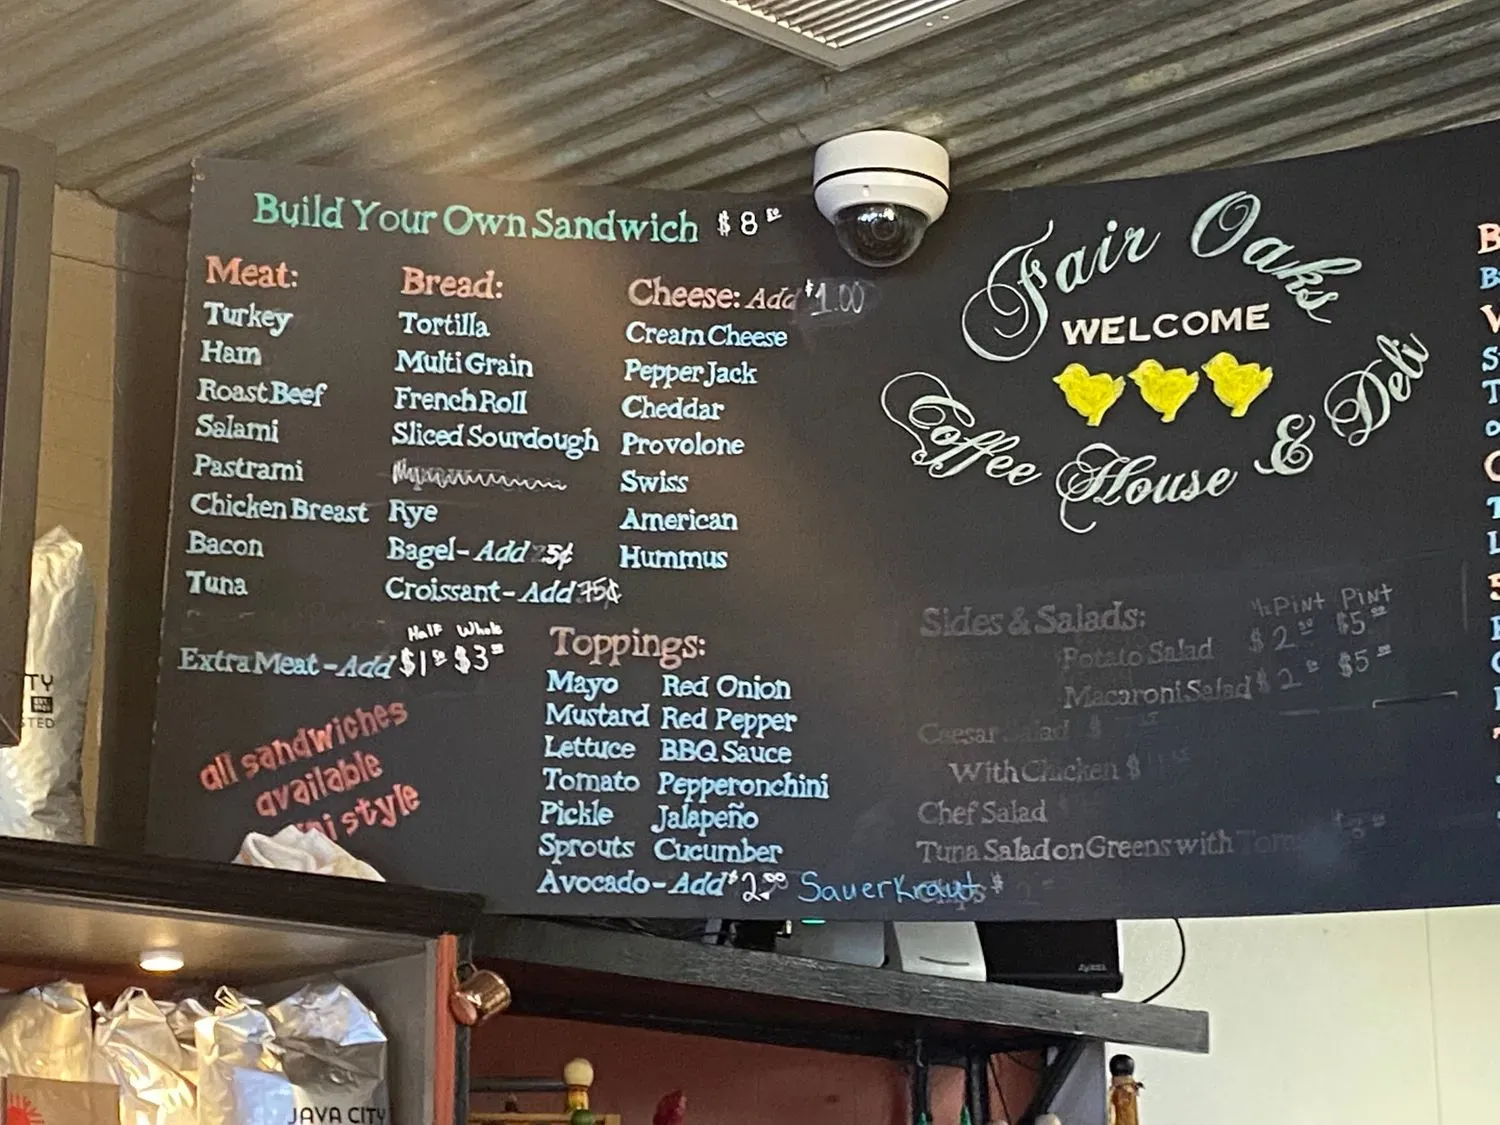 Build Your Own Sandwich $8.50
Meat:
Turkey
Ham
Roast Beef
Salami
Pastrami
Chicken Breast
Bacon
Tuna
Half Whole
Extra Meat - Add $1.50 $3.00
all sandwiches
available
style
Bread:
Tortilla
Multi Grain
French Roll
Sliced Sourdough
Rye
Bagel - Add 5¢
Croissant - Add 75¢
Cheese: Add $1.00
Cream Cheese
Pepper Jack
Cheddar
Provolone
Swiss
American
Hummus
Toppings:
Mayo Red Onion
Mustard Red Pepper
Lettuce BBQ Sauce
Tomato Pepperonchini
Pickle Jalapeño
Sprouts Cucumber
Avocado - Add $2.00 Sauerkraut $
Fair Oaks
WELCOME
Coffee House & Deli
Sides & Salads: ½ Pint Pint
Potato Salad $2.50 $5.00
Macaroni Salad $2.50 $5.00
Caesar Salad $
With Chicken $
Chef Salad
Tuna Salad on Greens with
JAVA CITY